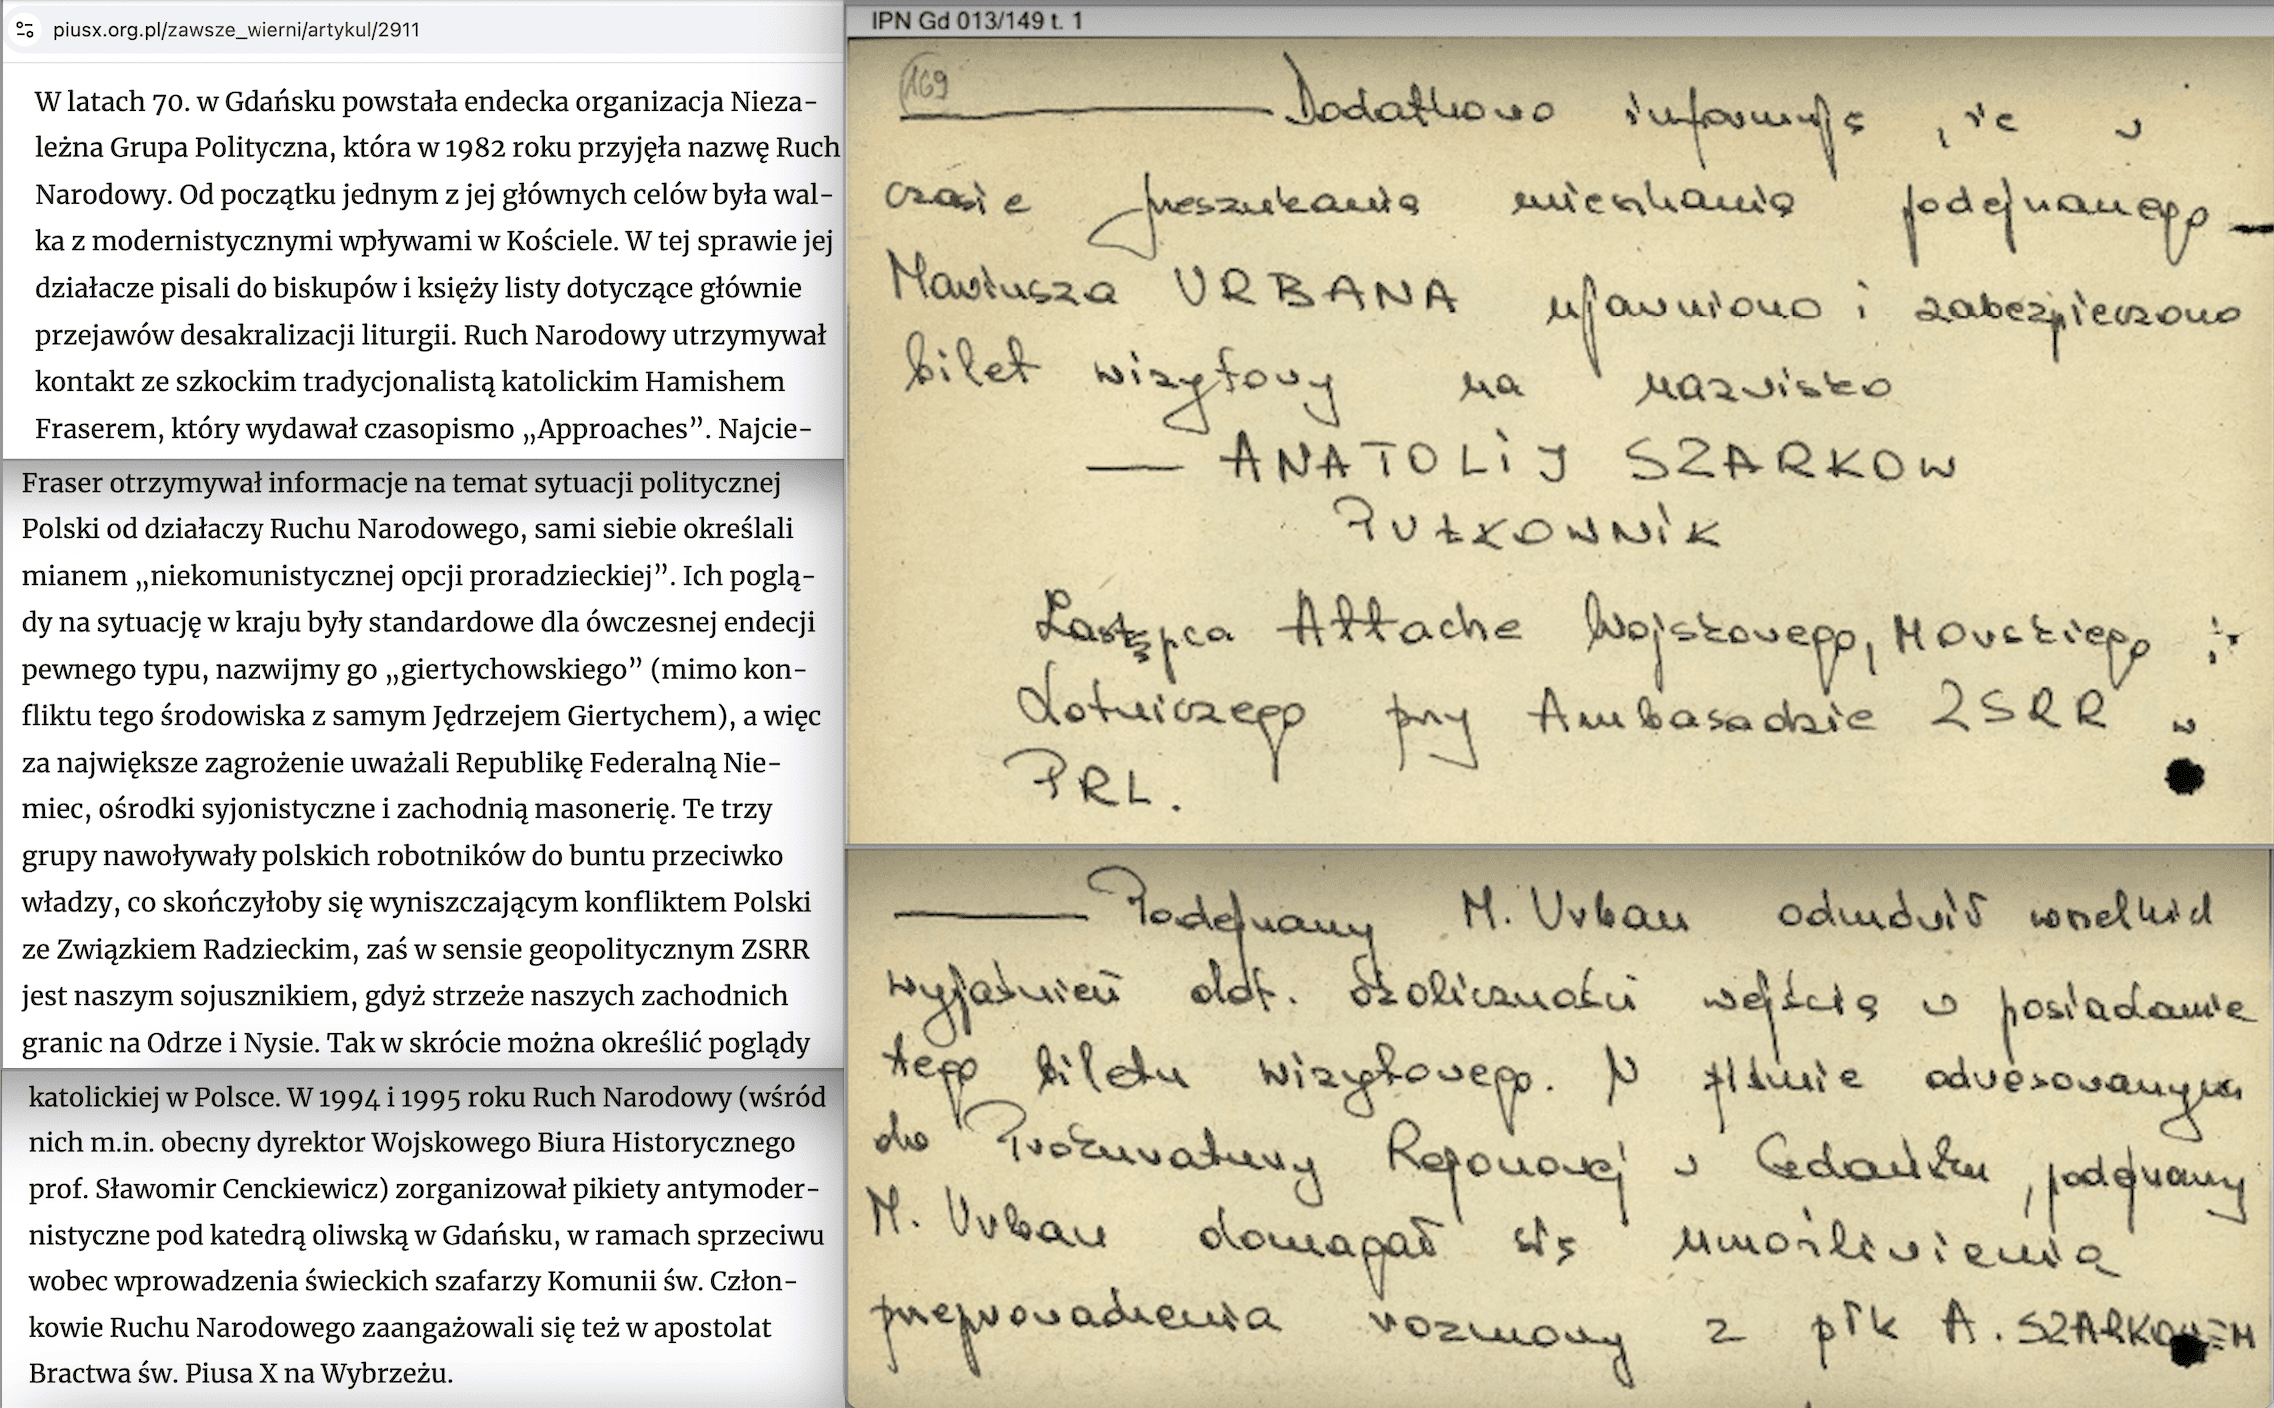 piusx.org.pl/zawsze_wierni/artykul/2911
W latach 70. w Gdańsku powstała endecka organizacja Nieza-
leżna Grupa Polityczna, która w 1982 roku przyjęła nazwę Ruch
Narodowy. Od początku jednym z jej głównych celów była wal-
ka z modernistycznymi wpływami w Kościele. W tej sprawie jej
działacze pisali do biskupów i księży listy dotyczące głównie
przejawów desakralizacji liturgii. Ruch Narodowy utrzymywał
kontakt ze szkockim tradycjonalistą katolickim Hamishem
Fraserem, który wydawał czasopismo „Approaches”. Najcie-
Fraser otrzymywał informacje na temat sytuacji politycznej
Polski od działaczy Ruchu Narodowego, sami siebie określali
mianem „niekomunistycznej opcji proradzieckiej”. Ich poglą-
dy na sytuację w kraju były standardowe dla ówczesnej endecji
pewnego typu, nazwijmy go „giertychowskiego” (mimo kon-
fliktu tego środowiska z samym Jędrzejem Giertychem), a więc
za największe zagrożenie uważali Republikę Federalną Nie-
miec, ośrodki syjonistyczne i zachodnią masonerię. Te trzy
grupy nawoływały polskich robotników do buntu przeciwko
władzy, co skończyłoby się wyniszczającym konfliktem Polski
ze Związkiem Radzieckim, zaś w sensie geopolitycznym ZSRR
jest naszym sojusznikiem, gdyż strzeże naszych zachodnich
granic na Odrze i Nysie. Tak w skrócie można określić poglądy
katolickiej w Polsce. W 1994 i 1995 roku Ruch Narodowy (wśród
nich m.in. obecny dyrektor Wojskowego Biura Historycznego
prof. Sławomir Cenckiewicz) zorganizował pikiety antymoder-
nistyczne pod katedrą oliwską w Gdańsku, w ramach sprzeciwu
wobec wprowadzenia świeckich szafarzy Komunii św. Człon-
kowie Ruchu Narodowego zaangażowali się też w apostolat
Bractwa św. Piusa X na Wybrzeżu.
IPN Gd 013/149 t. 1
169
Dodatkowo informuję, że w
czasie przeszukania mieszkania podejrzanego
Mariusza URBANA ujawniono i zabezpieczono
bilet wizytowy na nazwisko
— ANATOLIJ SZARKOW
PUŁKOWNIK
Zastępca Attache Wojskowego, Morskiego i
Lotniczego przy Ambasadzie ZSRR w
PRL.
Podejrzany M. Urban odmówił wszelkich
wyjaśnień dot. okoliczności wejścia w posiadanie
tego biletu wizytowego. W piśmie adresowanym
do Prokuratury Rejonowej w Gdańsku, podejrzany
M. Urban domagał się umożliwienia
przeprowadzenia rozmowy z płk A. SZARKOWEM